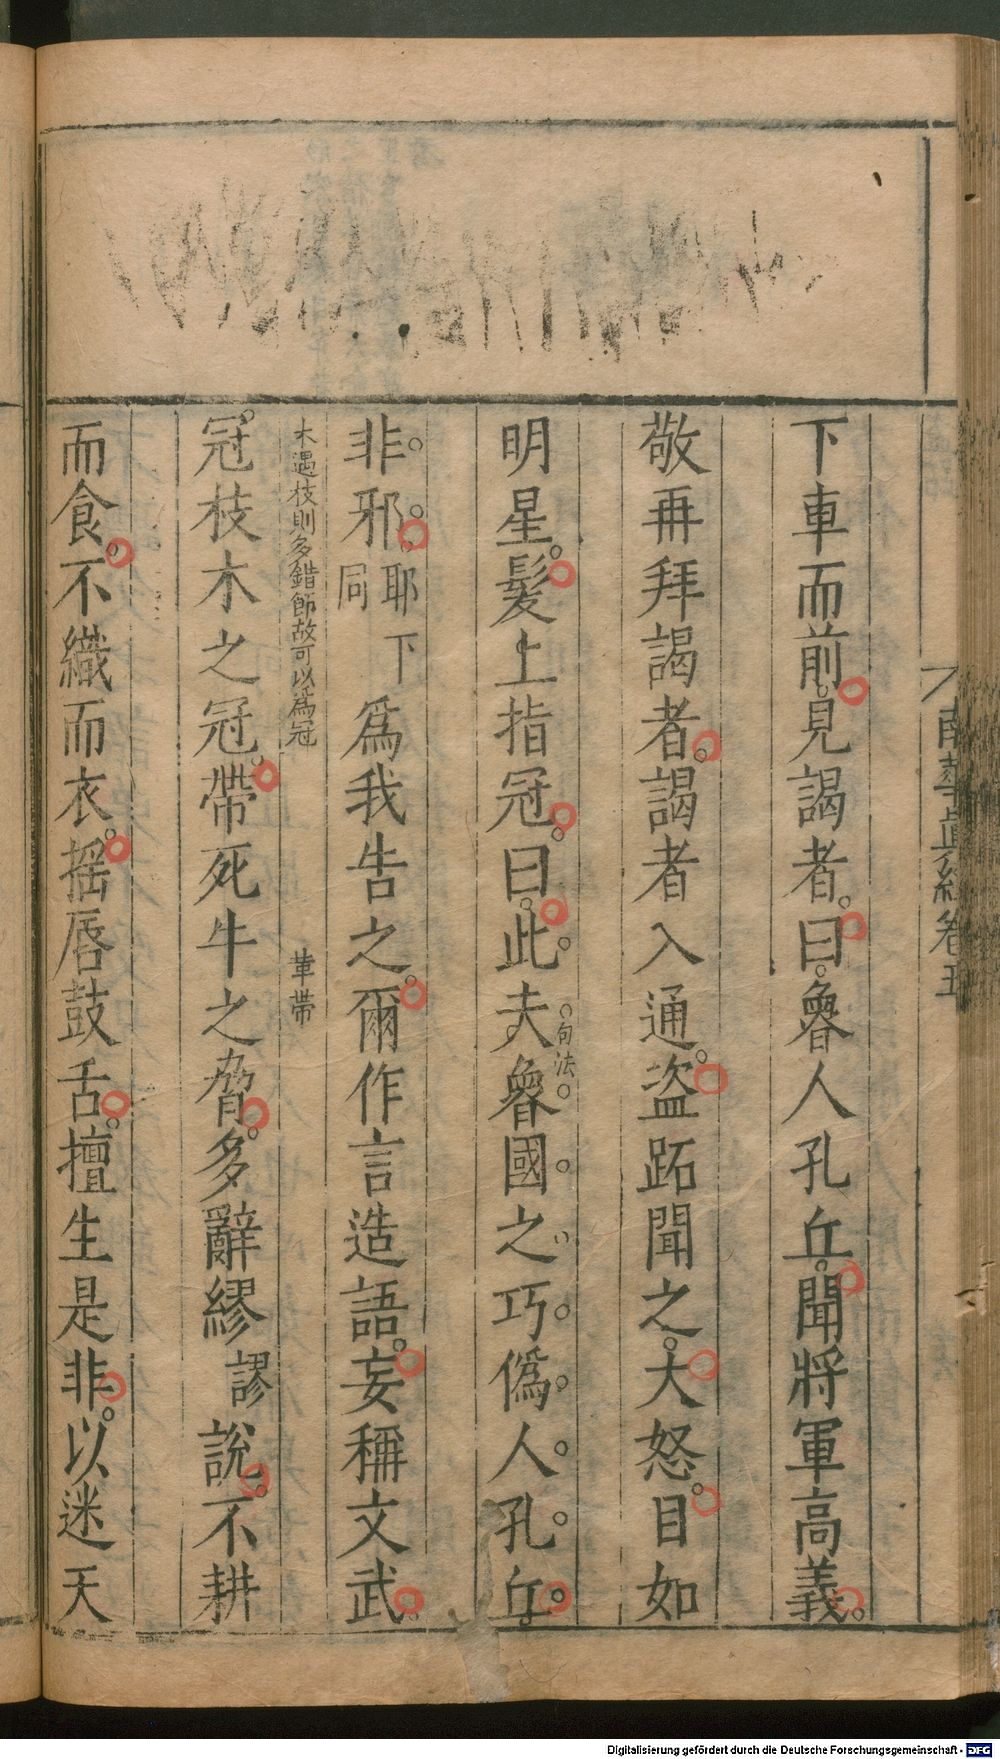 南華眞經卷五
下車而前見謁者曰魯人孔丘聞將軍高義
敬再拜謁者謁者入通盜跖聞之大怒目如
明星髮上指冠曰此夫魯國之巧僞人孔丘
句法
非邪耶下同爲我告之爾作言造語妄稱文武
木遇枝則多錯節故可以爲冠
革帶
冠枝木之冠帶死牛之脅多辭繆謬說不耕
而食不織而衣摇唇鼓舌擅生是非以迷天
Digitalisierung gefördert durch die Deutsche Forschungsgemeinschaft - DFG